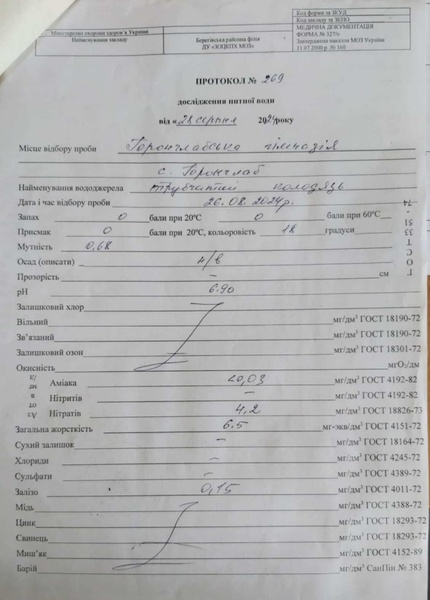 Міністерство охорони здоров'я України
Найменування закладу
Берегівська районна філія
ДУ «ЗОЦКПХ МОЗ»
Код форми за ЗКУД
Код закладу за ЗКПО
МЕДИЧНА ДОКУМЕНТАЦІЯ
ФОРМА № 327/о
Затверджена наказом МОЗ України
11.07.2000 р. № 160
ПРОТОКОЛ № 269
дослідження питної води
від «28 серпня 2024року
Місце відбору проби Горонглабська гімназія
с. Горонглаб
Найменування вододжерела трубчатий колодязь
Дата і час відбору проби 26.08.2024р.
Запах 0 бали при 20ºС 0 бали при 60ºС
Присмак 0 бали при 20ºС, кольоровість 18 градуси
Мутність 0,68
Осад (описати) н/в
Прозорість – см
рН 6.90
Залишковий хлор
Вільний мг/дм³ ГОСТ 18190-72
Зв'язаний мг/дм³ ГОСТ 18190-72
Залишковий озон мг/дм³ ГОСТ 18301-72
Окисність мгО₂/дм
Аміака <0,03 мг/дм³ ГОСТ 4192-82
Нітритів – мг/дм³ ГОСТ 4192-82
Нітратів 4,2 мг/дм³ ГОСТ 18826-73
Загальна жорсткість 6.5 мг-экв/дм³ ГОСТ 4151-72
Сухий залишок – мг/дм³ ГОСТ 18164-72
Хлориди – мг/дм³ ГОСТ 4245-72
Сульфати – мг/дм³ ГОСТ 4389-72
Залізо 0,15 мг/дм³ ГОСТ 4011-72
Мідь мг/дм³ ГОСТ 4388-72
Цинк мг/дм³ ГОСТ 18293-72
Свинець мг/дм³ ГОСТ 18293-72
Миш'як мг/дм³ ГОСТ 4152-89
Барій мг/дм³ СанПін № 383